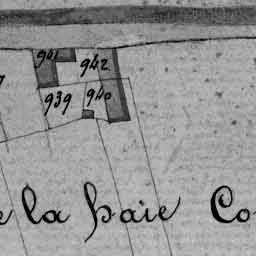 941 942
939 940
la haie